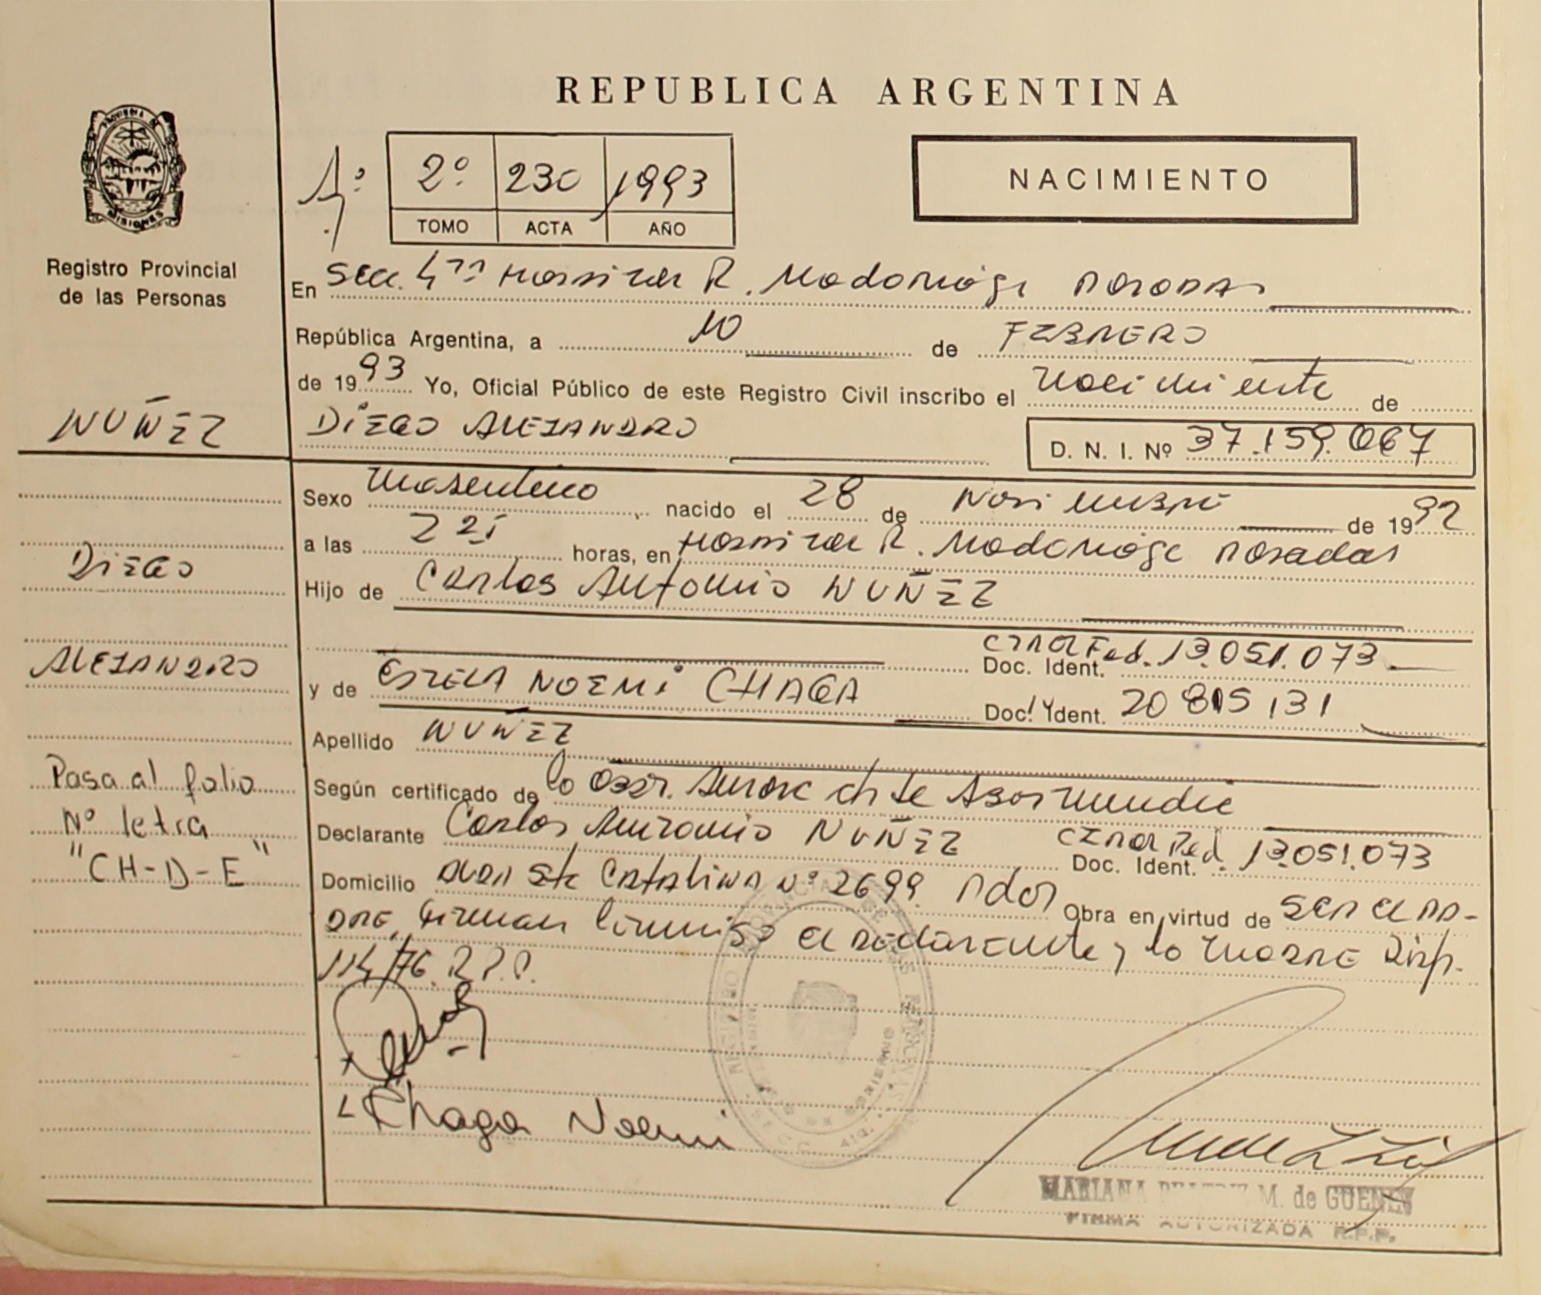 REPUBLICA ARGENTINA
2º 230 1993
TOMO ACTA AÑO
NACIMIENTO
Registro Provincial
de las Personas
En Secc. 4ta Hospital R. Madariaga Posadas
República Argentina, a 10 de FEBRERO
de 1993 Yo, Oficial Público de este Registro Civil inscribo el nacimiento de
NUÑEZ DIEGO ALEJANDRO
D. N. I. Nº 37.159.067
Sexo masculino nacido el 28 de Noviembre de 1992
a las horas, en Hospital R. Madariaga Posadas
DIEGO
Hijo de Carlos Antonio NUÑEZ
Doc. Ident. 13.051.073
ALEJANDRO
y de ESTELA NOEMI CHAGA Doc. Ident. 20 815 131
Apellido NUÑEZ
Pasa al folio
Nº letra
"CH-D-E"
Según certificado de la Obst.
Declarante Carlos Antonio NUÑEZ Doc. Ident. 13.051.073
Domicilio Sta CATALINA Nº 2699 Pdas Obra en virtud de SER EL PA-
DRE, Firman el declarante y la MADRE Disp.
114/76. R.P.P.
Chaga Noemi
MARIANA BEATRIZ M. de
FIRMA AUTORIZADA R.P.P.